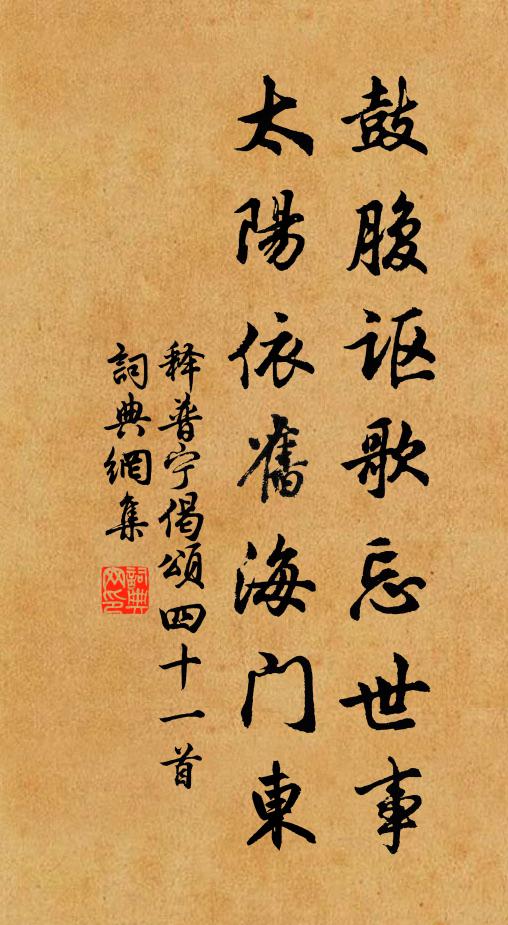 鼓腹讴歌忘世事
太陽依舊海門東
释普宁偈頌四十一首
詞典網集
詞典
网印